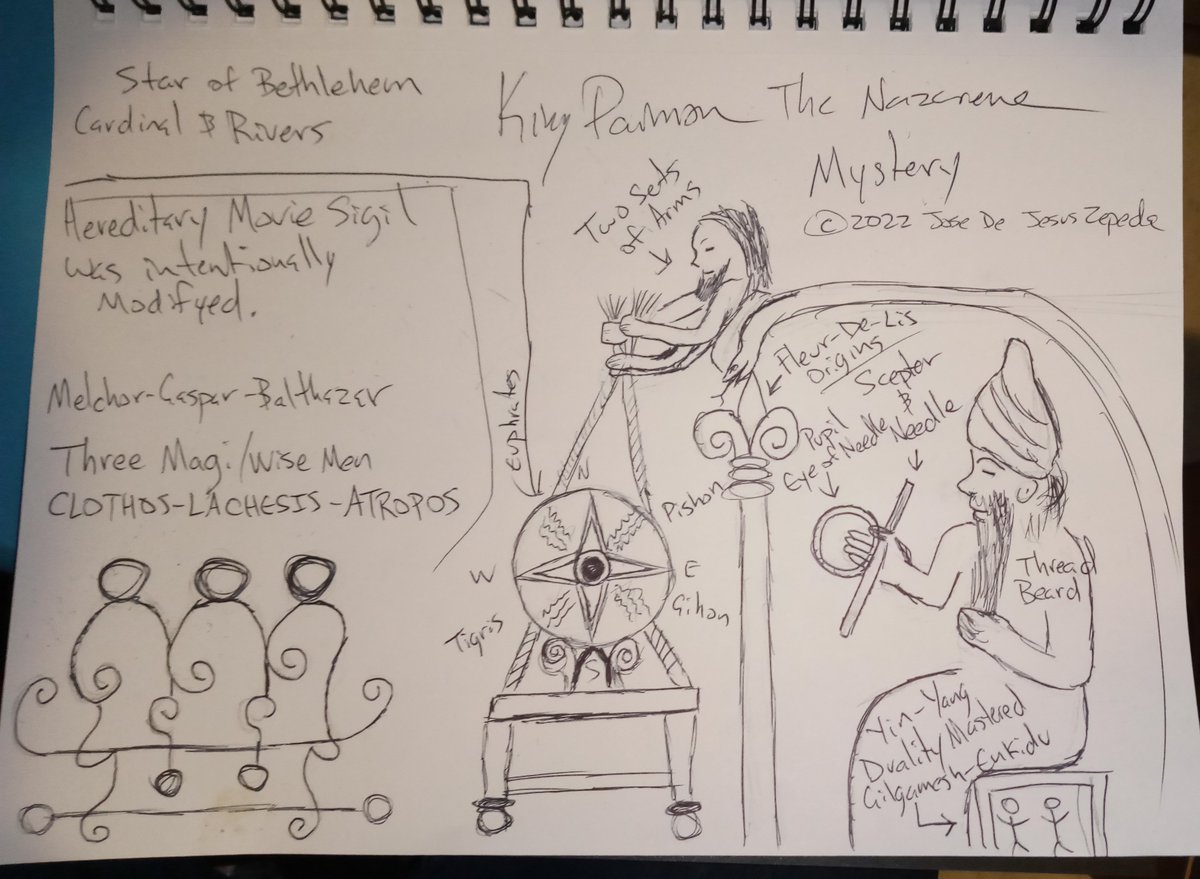 Star of Bethlehem
Cardinal & Rivers
King Paimon The Nazarene
Mystery
©2022 Jose De Jesus Zepeda
Hereditary Movie Sigil
was intentionally
Modifyed.
Melchor-Gaspar-Balthazar
Three Magi/Wise Men
CLOTHOS-LACHESIS-ATROPOS
Two Sets
of Arms
Euphrates
N
W
E
S
Pishon
Gihon
Tigris
Fleur-De-Lis
Origins
Scepter
&
Needle
Pupil
Eye of Needle
Thread
Beard
Yin-Yang
Duality Mastered
Gilgamesh-Enkidu